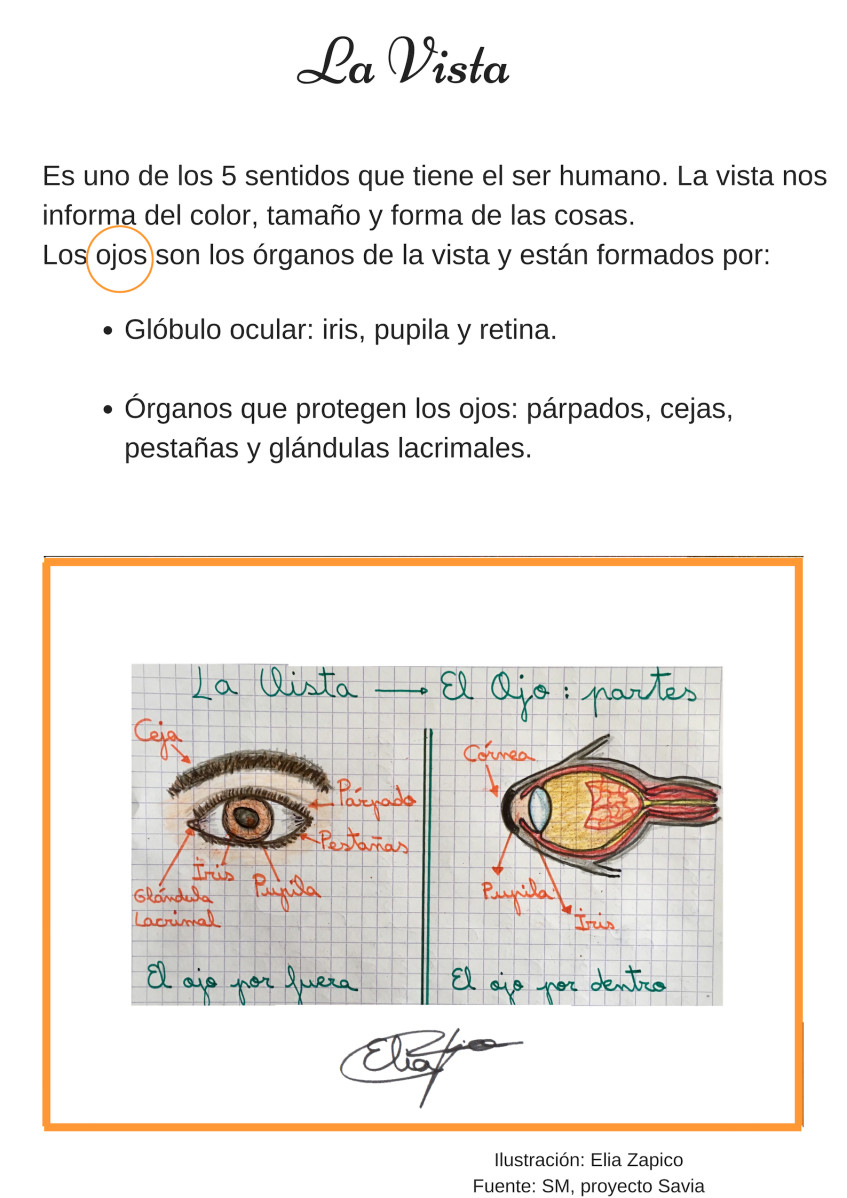 La Vista
Es uno de los 5 sentidos que tiene el ser humano. La vista nos
informa del color, tamaño y forma de las cosas.
Los ojos son los órganos de la vista y están formados por:
• Glóbulo ocular: iris, pupila y retina.
• Órganos que protegen los ojos: párpados, cejas,
pestañas y glándulas lacrimales.
La Vista → El Ojo: partes
Ceja
Párpado
Pestañas
Iris
Pupila
Glándula
Lacrimal
El ojo por fuera
Córnea
Pupila
Iris
El ojo por dentro
Elia
Ilustración: Elia Zapico
Fuente: SM, proyecto Savia